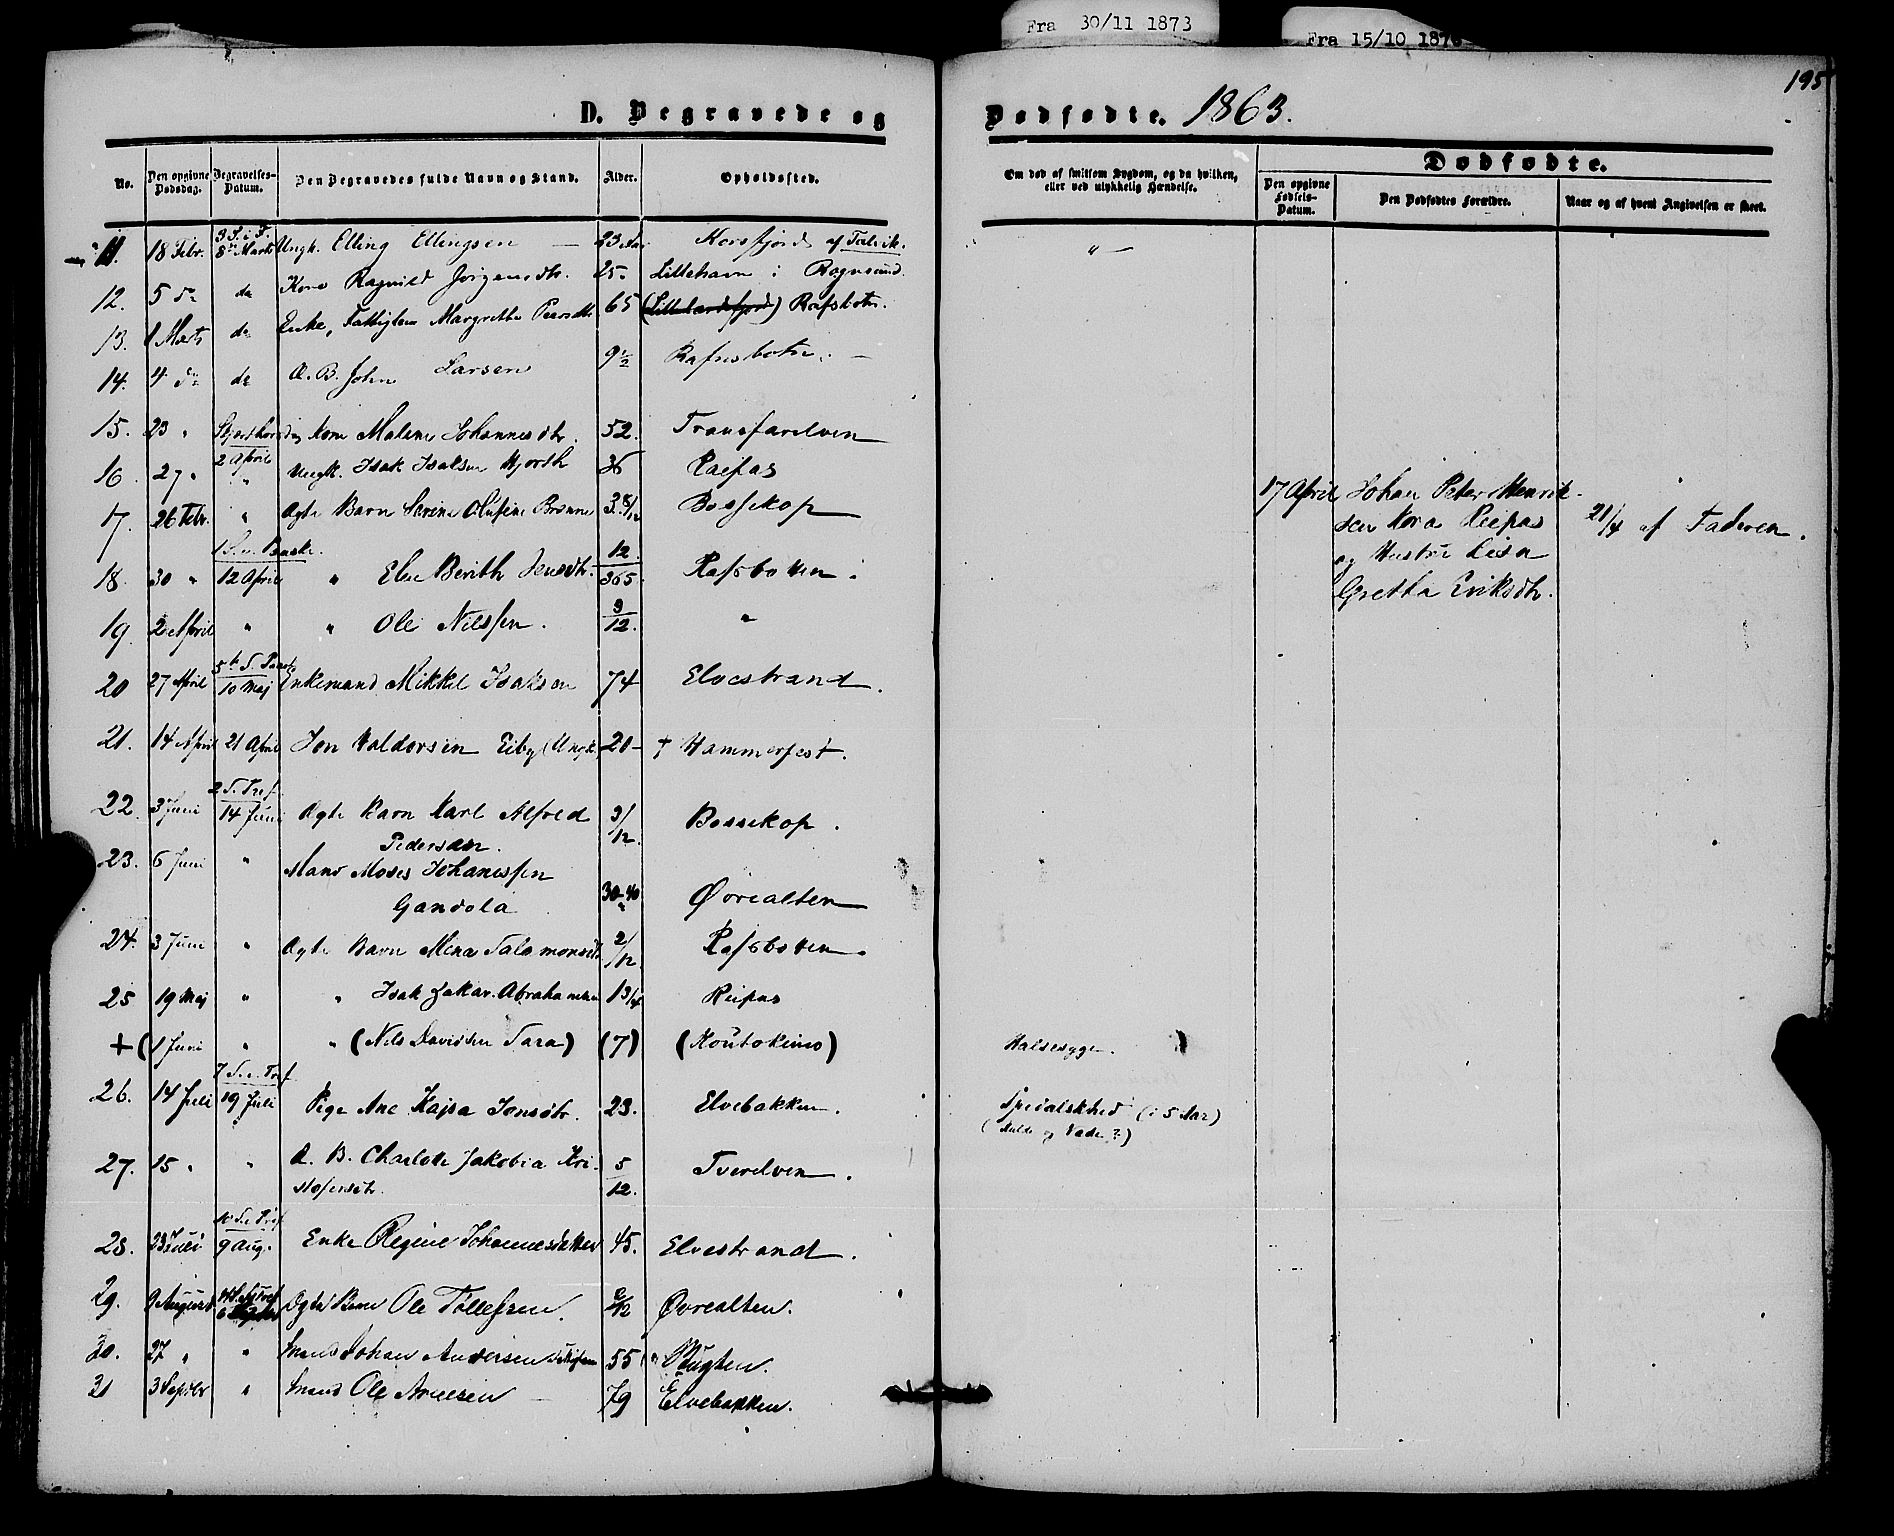 Fra 30/11 1873
Fra 15/10 187
195
D. Begravede og Dødfødte. 1863.
No. Den opgivne Dødsdag. Begravelses-Datum. Den Begravedes fulde Navn og Stand. Alder. Opholdssted. Om død af smitsom Sygdom, og da hvilken, eller ved ulykkelig Hændelse. Dødfødte.
Den opgivne Fødsels-Datum. Den Dødfødtes Forældre. Naar og af hvem Angivelsen er skeet.
3 S. i F.
11. 18 Febr. 8de Marts Ungk. Elling Ellingsen — 23 Aar Korsfjord af Talvik. " —
12. 5 do do Kone Ragnild Jørgensdtr. 25 Lillehavn i Rognsund.
13. 1 Marts do Enke, Fattiglem Margrethe Peersdtr. 65 (Lillelærredsfjord) Rafsbotn.
14. 4 do do Æ. B. John Larsen 9 1/2 Rafnsbotn. —
15. 23 " Skjærthorsdag Kone Malene Johannesdtr. 52. Tranfarelven
2 April
16. 27 " " Ungk. Isak Isaksen Hjorth 36 Raipas
17. 26 Febr. " Ægte Barn Serine Olufine Brønne 3 8/12 Bossekop
1 S. e. Paaske.
18. 30 " 12 April " Elen Berith Jensdtr. 12/365. Rafsbotten.
19. 2 April " " Ole Nilssen. 9/12. "
5te S. Paaske
20 27 April 10 Maj Enkemand Mikkel Isaksen 74 Elvestrand.
21. 14 April 21 April Jon Haldorsen Eiby (Ungk.) 20 — † Hammerfest.
2 S. Tref.
22. 3 Juni 14 Juni Ægte Barn Karl Alfred 3/12. Bossekop.
Pedersen.
23. 6 Juni " Mand Moses Johanessen
Gandola 30-40 Øvrealten
24. 3 Juni " Ægte Barn Mina Salamonsdtr. 2/12. Rafsbotten.
25 19 Maj " " Isak Zakar. Abrahamsen 1 3/4 Reipas
+ (1 Juni " " (Nils Davidsen Sara) (7) (Koutokeino) Halsesyge.
7 S. e. Tref
26. 14 Juli 19 Juli Pige Ane Kajsa Jonsdtr. 23. Elvebakken. Spedalskhed (i 5 Aar)
(Kulde og Væde?)
27. 15 " " Æ. B. Charlotte Jakobia Kri- 5/12. Tverelven.
stofersdtr.
10 S. e. Tref
28. 23 Juli 9 Aug. Enke Regine Johannesdatter 45. Elvestrand.
29. 9 August Ægte Barn Ole Tollefsen. 2/12 Øvrealten.
30. 27 " " Mand Johan Andersen 55 Bugten.
31 3 Septbr " Mand Ole Andersen — 79 Elvebakken.
17 April Johan Peter Henrik-
sen Kora Reipas
og Hustru Lisa
Gretha Eriksdtr.
21/4 af Faderen.